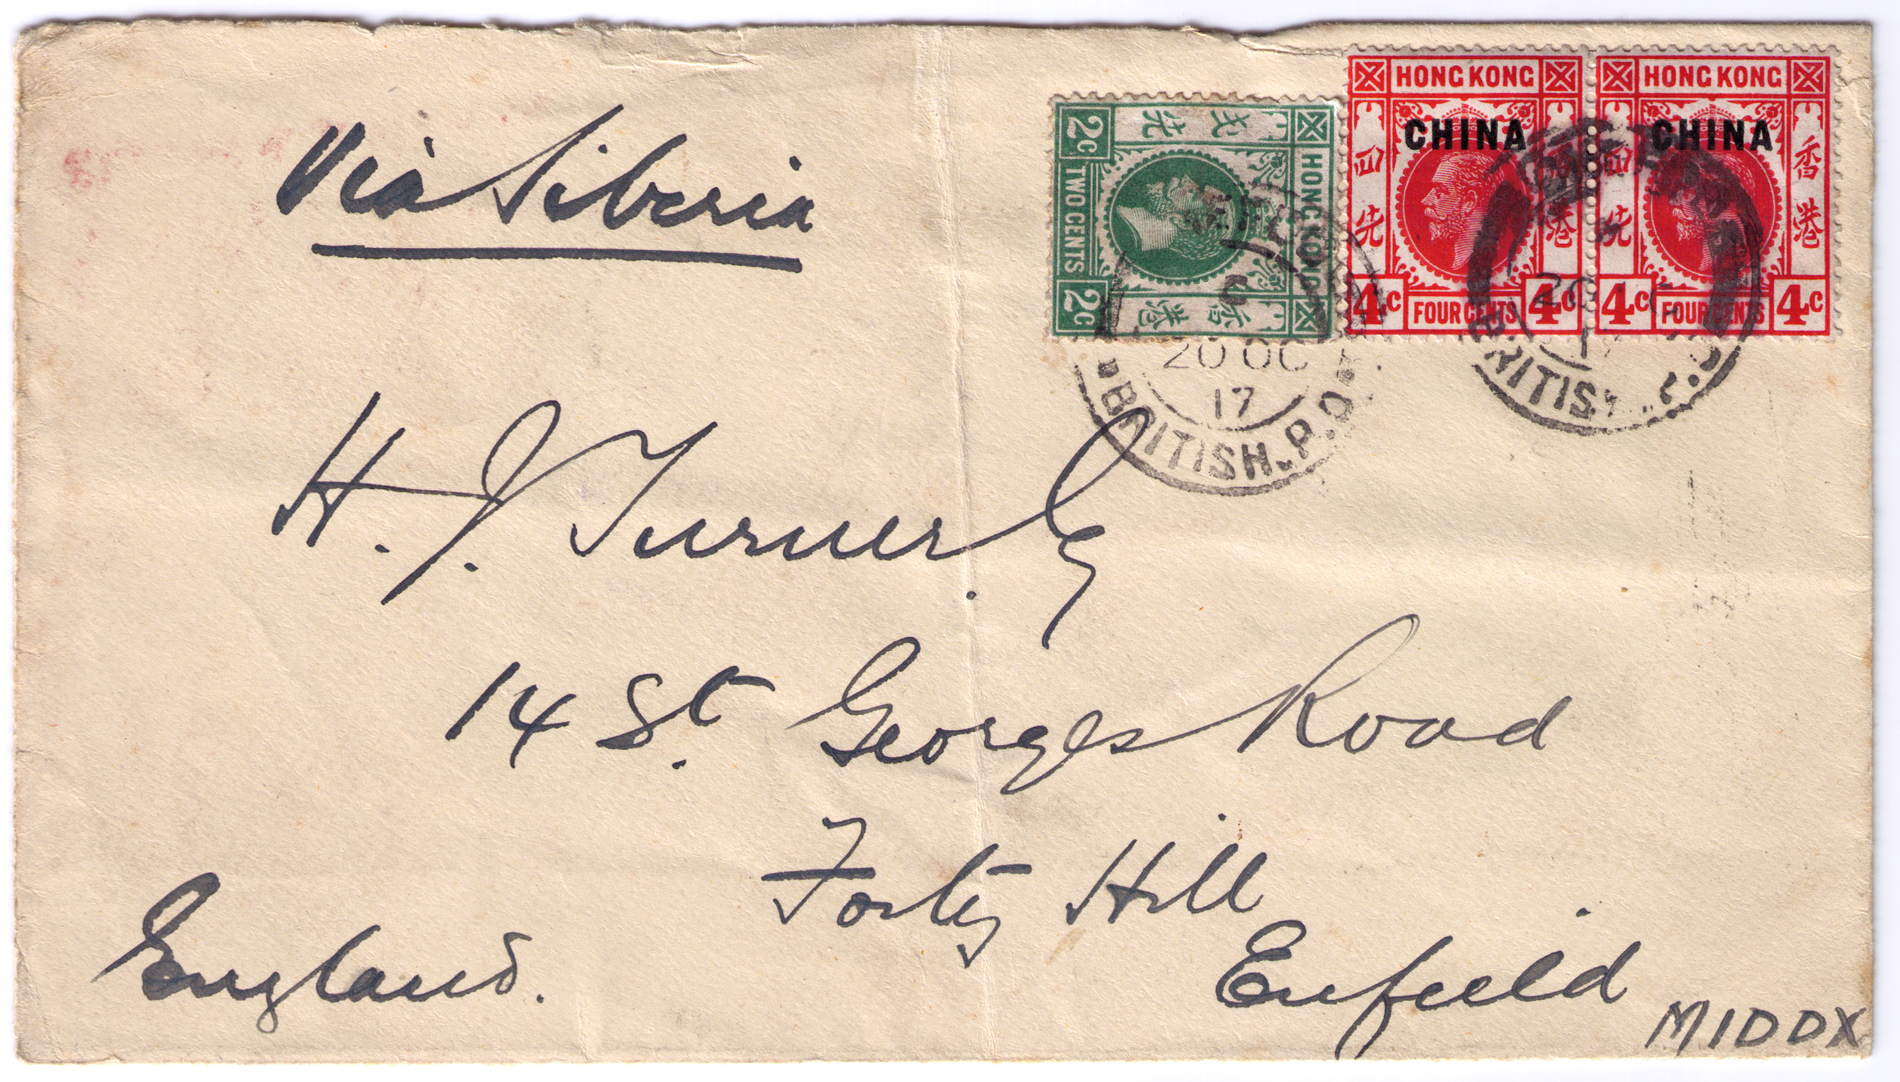 Via Siberia
HONG KONG
CHINA
四 先
香 港
4c FOUR CENTS 4c
HONG KONG
CHINA
四 先
香 港
4c FOUR CENTS 4c
HONG KONG
2c TWO CENTS 2c
香 港
先 貳
20 OC
17
BRITISH. P.O.
20
17
BRITISH P.O.
H. J. Turner. Esq
14 St. Georges Road
Forty Hill
Enfield
MIDDX
England.